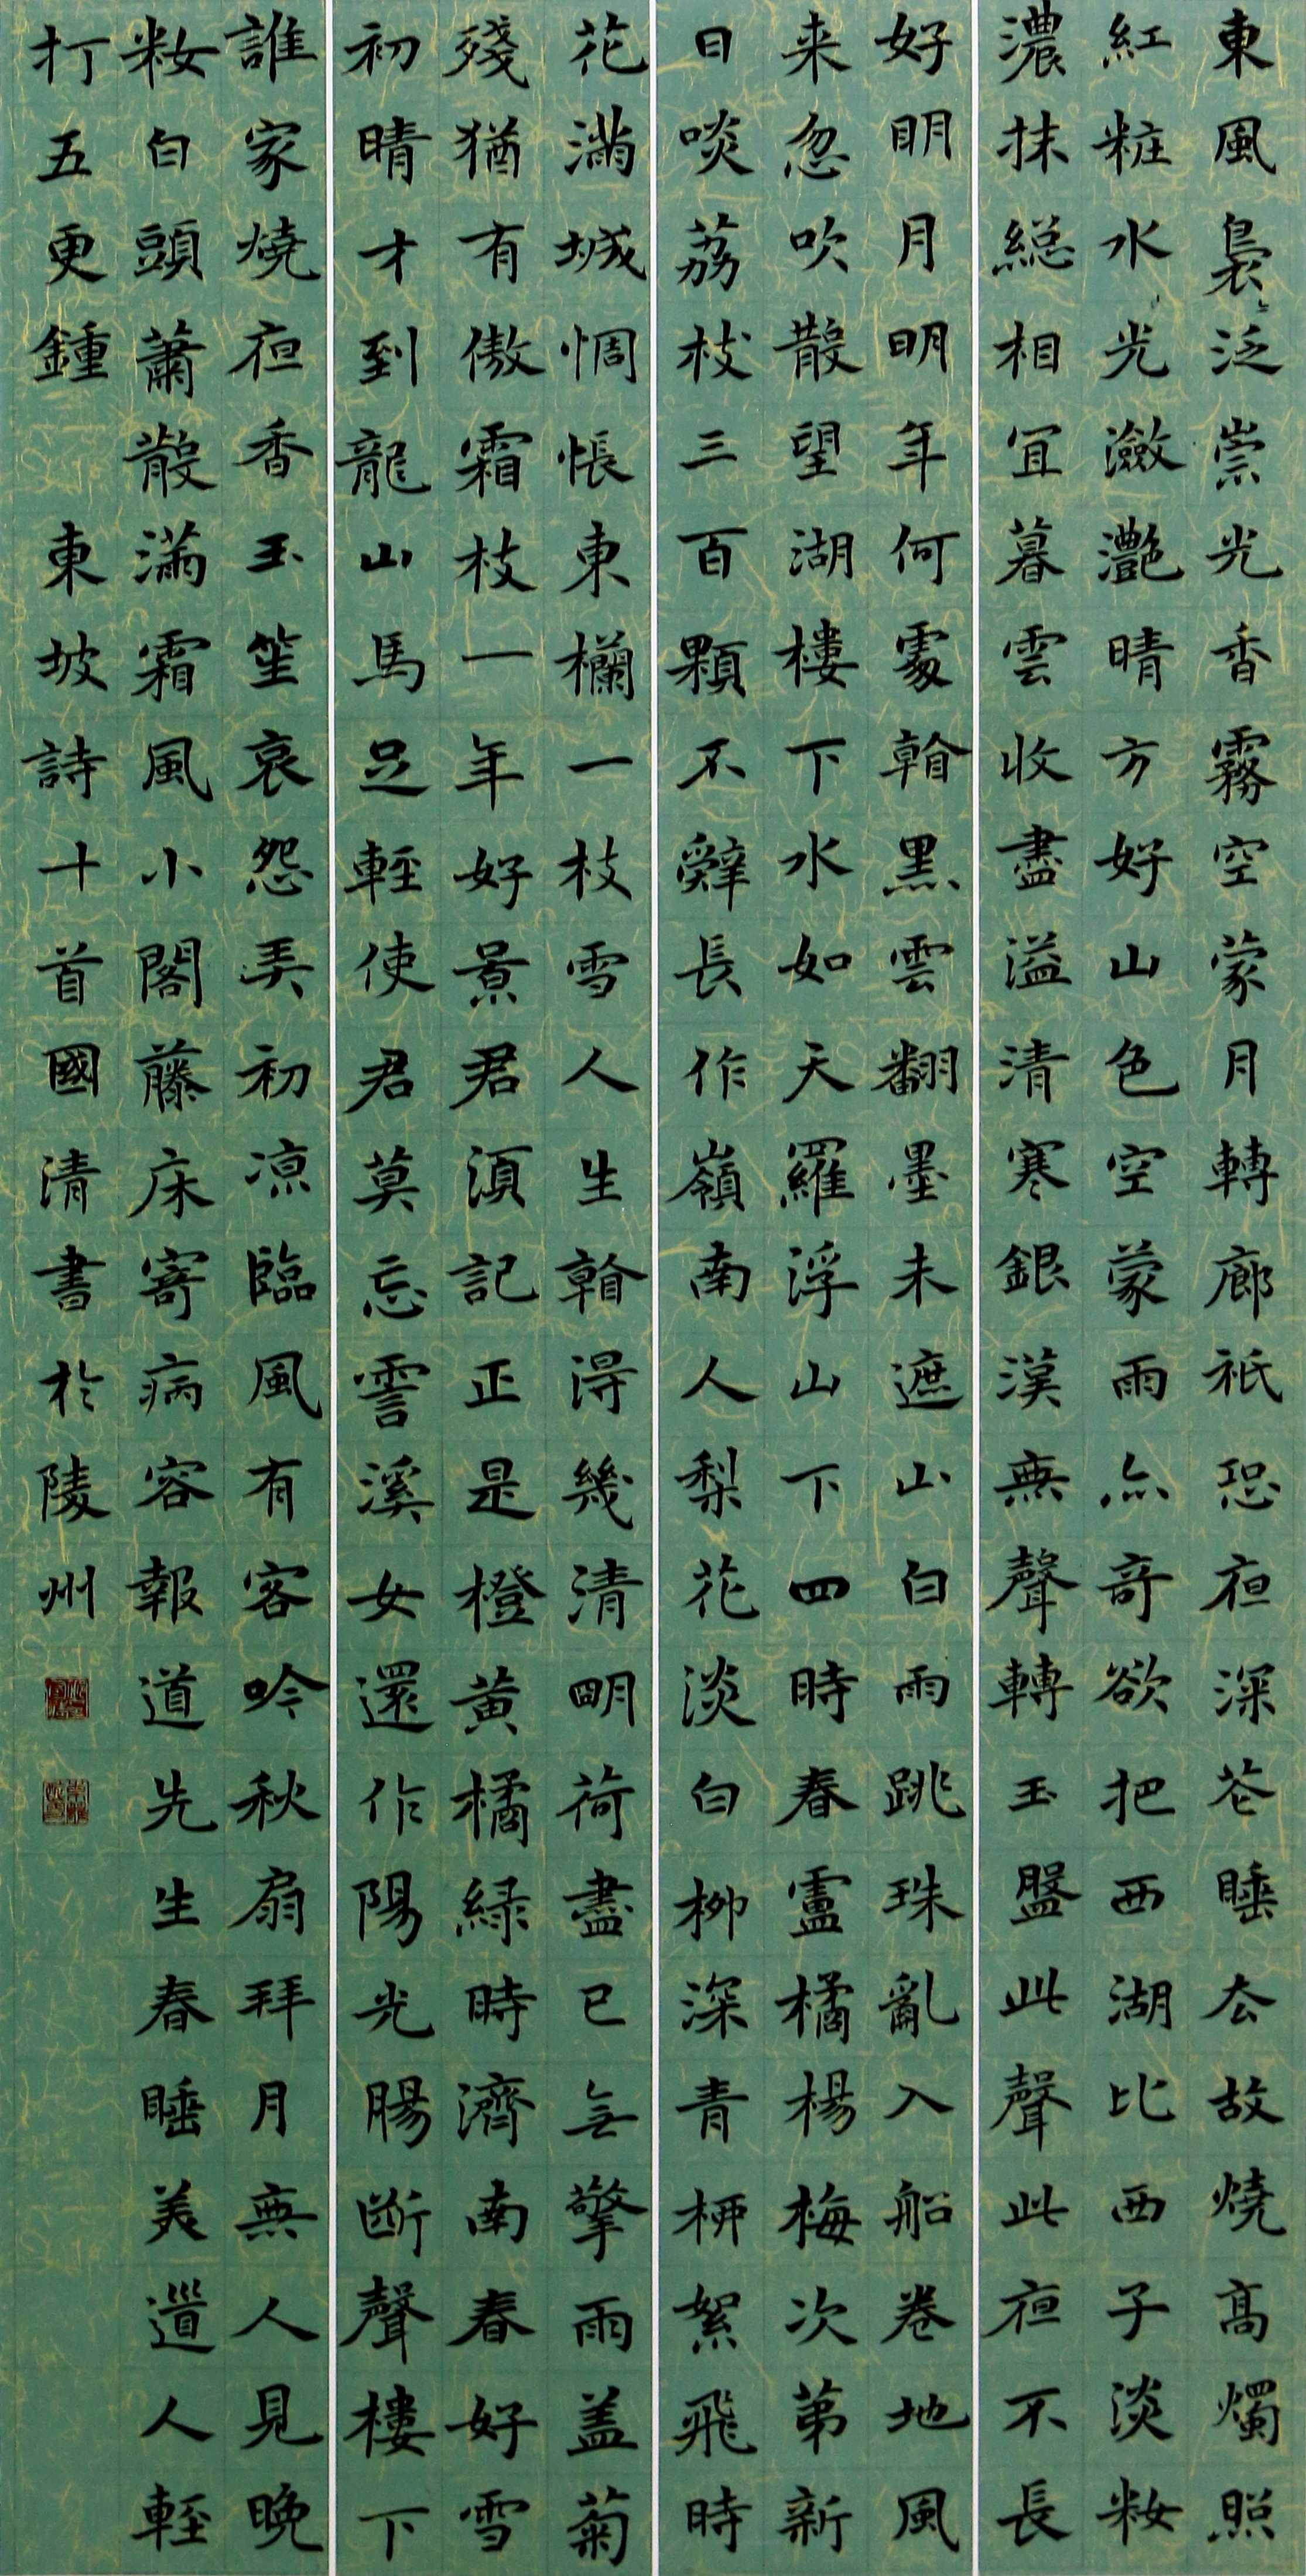 東風裊〻泛崇光香霧空蒙月轉廊祇恐夜深花睡去故燒高燭照
紅粧水光瀲灩晴方好山色空蒙雨亦奇欲把西湖比西子淡妝
濃抹總相宜暮雲收盡溢清寒銀漢無聲轉玉盤此聲此夜不長
好明月明年何處看黑雲翻墨未遮山白雨跳珠亂入船卷地風
来忽吹散望湖樓下水如天羅浮山下四時春盧橘楊梅次第新
日啖荔枝三百顆不辭長作嶺南人梨花淡白柳深青柳絮飛時
花滿城惆悵東欄一枝雪人生看得幾清明荷盡已無擎雨盖菊
殘猶有傲霜枝一年好景君須記正是橙黄橘緑時濟南春好雪
初晴才到龍山馬足輕使君莫忘霅溪女還作陽光腸斷聲樓下
誰家燒夜香玉笙哀怨弄初凉臨風有客吟秋扇拜月無人見晚
妝白頭蕭散滿霜風小閣藤床寄病容報道先生春睡美道人輕
打五更鍾 東坡詩十首國清書於陵州